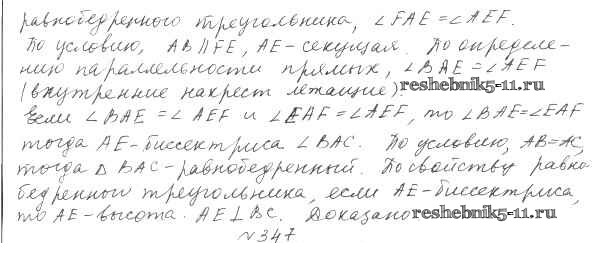 равнобедренного треугольника, ∠FAE=∠AEF.
По условию, AB∥FE, AE-секущая. По определе-
нию параллельности прямых, ∠BAE=∠AEF
(внутренние накрест лежащие). reshebnik5-11.ru
Если ∠BAE=∠AEF и ∠EAF=∠AEF, то ∠BAE=∠EAF
тогда AE-биссектриса ∠BAC. По условию, AB=AC,
тогда △ BAC-равнобедренный. По свойству равно-
бедренного треугольника, если AE-биссектриса,
то AE-высота. AE⊥BC. Доказано reshebnik5-11.ru
№347